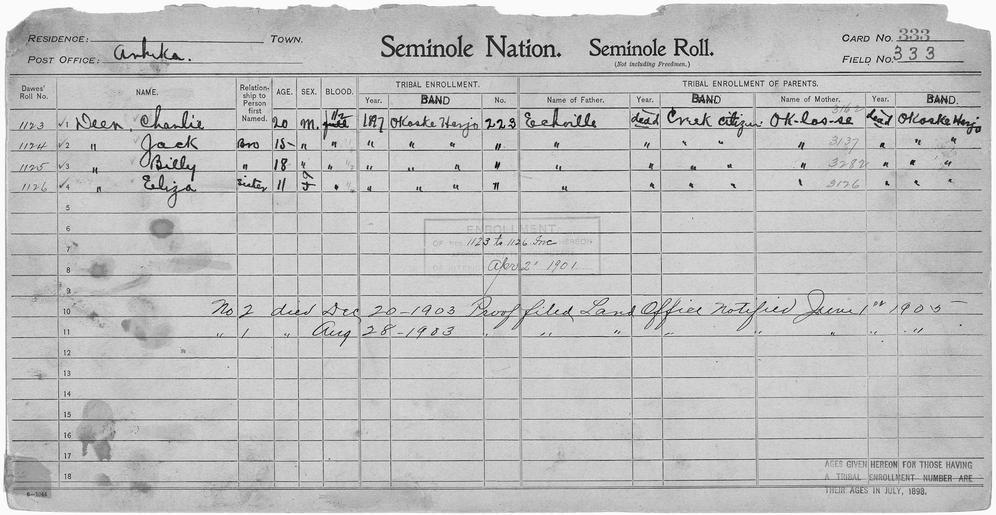 RESIDENCE: TOWN.
POST OFFICE: Arbeka.
Seminole Nation. Seminole Roll.
(Not including Freedmen.)
CARD NO. 333
FIELD NO. 333
Dawes' Roll No. NAME. Relationship to Person first Named. AGE. SEX. BLOOD. TRIBAL ENROLLMENT. TRIBAL ENROLLMENT OF PARENTS.
Year. BAND No. Name of Father. Year. BAND Name of Mother. Year. BAND.
1123 ✓1 Deer, Charlie 20 M. 1/2 1897 Okoske Harjo 223 Echville dead Creek citizen Ok-los-se 3162 dead Okoske Harjo
1124 ✓2 " Jack Bro 15 " " 1/2 " " " " " " " " " 3137 " " "
1125 ✓3 " Billy " 18 " " 1/2 " " " " " " " " " 3282 " " "
1126 ✓4 " Eliza Sister 11 F " 1/2 " " " " " " " " " 3126 " " "
5
6 ENROLLMENT
7 OF HEREON 1123 to 1126 Inc
8 Apr 2' 1901
9
10 No 2 died Dec 20-1903 Proof filed Land Office notified June 1st 1905
11 " 1 " Aug 28-1903 " " " " " "
12
13
14
15
16
17
18
AGES GIVEN HEREON FOR THOSE HAVING
A TRIBAL ENROLLMENT NUMBER ARE
THEIR AGES IN JULY, 1898.